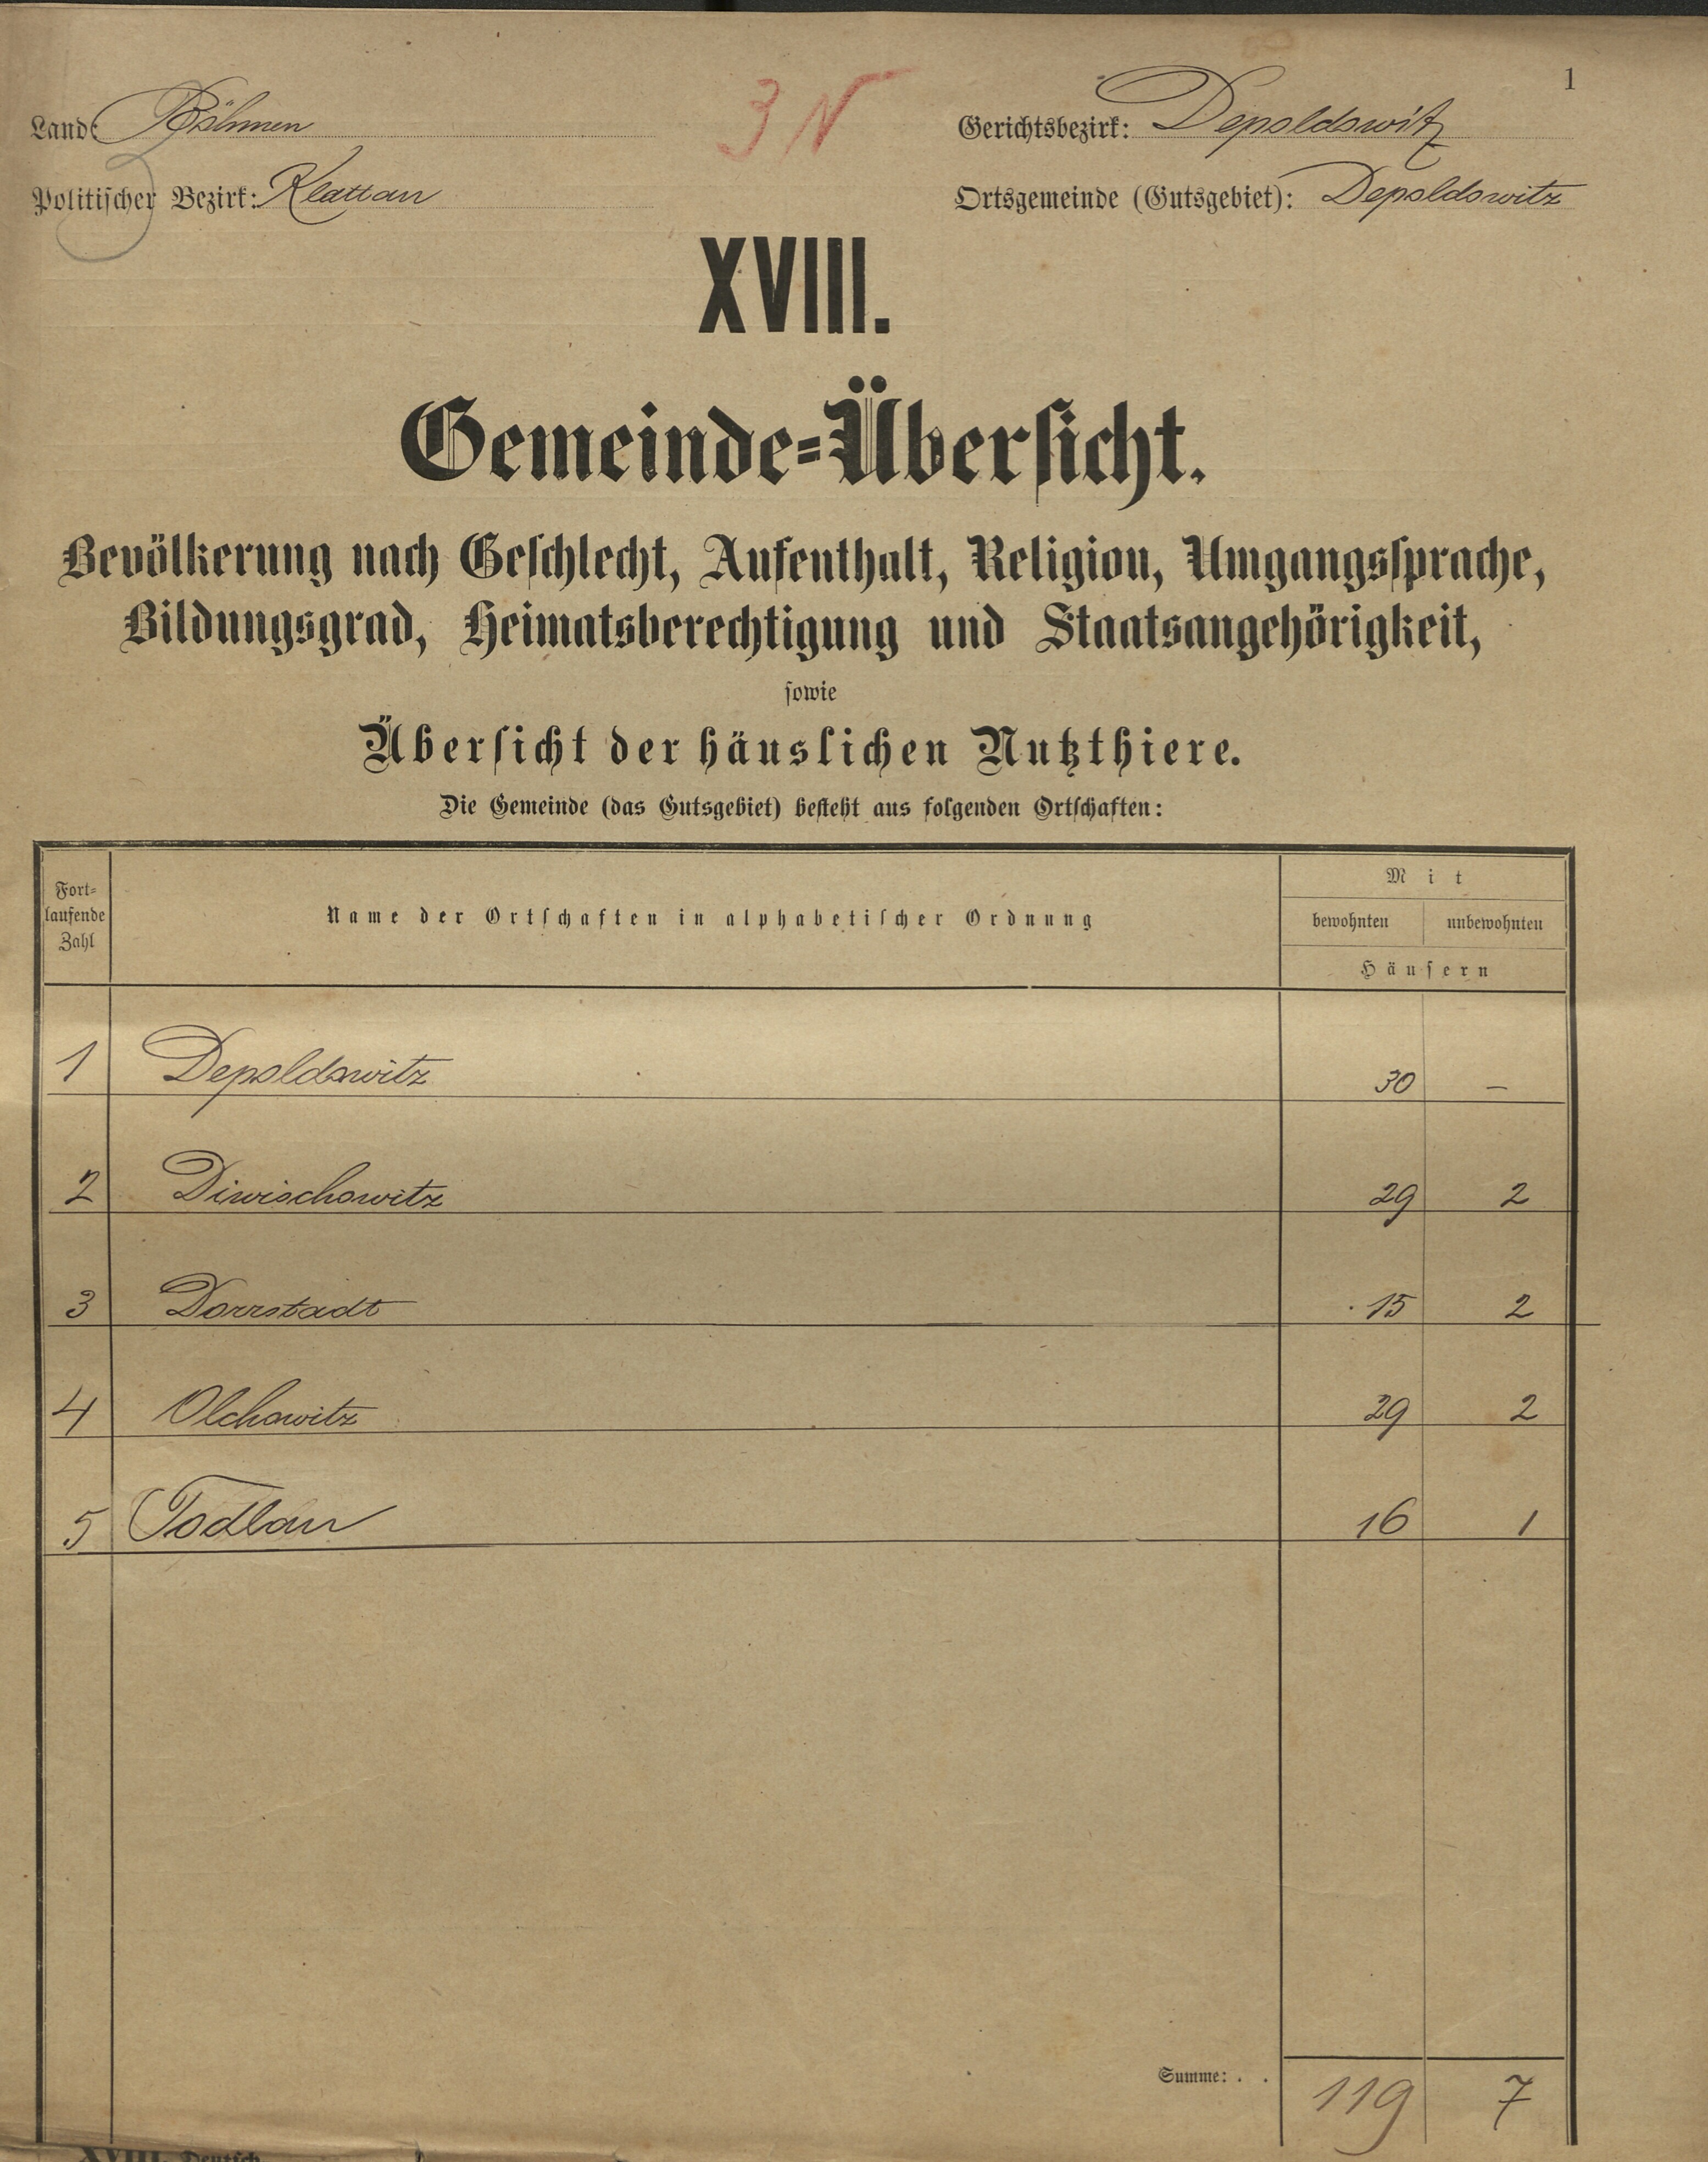 1
3 N
Land: Böhmen
Gerichtsbezirk: Depoldowitz
3
Politischer Bezirk: Klattau
Ortsgemeinde (Gutsgebiet): Depoldowitz
XVIII.
Gemeinde-Übersicht.
Bevölkerung nach Geschlecht, Aufenthalt, Religion, Umgangssprache,
Bildungsgrad, Heimatsberechtigung und Staatsangehörigkeit,
sowie
Übersicht der häuslichen Nutzthiere.
Die Gemeinde (das Gutsgebiet) besteht aus folgenden Ortschaften:
Fort-
laufende
Zahl
Name der Ortschaften in alphabetischer Ordnung
Mit
bewohnten unbewohnten
Häusern
1 Depoldowitz 30 –
2 Diwischowitz 29 2
3 Dorrstadt 15 2
4 Olchowitz 29 2
5 Todlau 16 1
Summe: . . 119 7
XVIII. Deutsch.